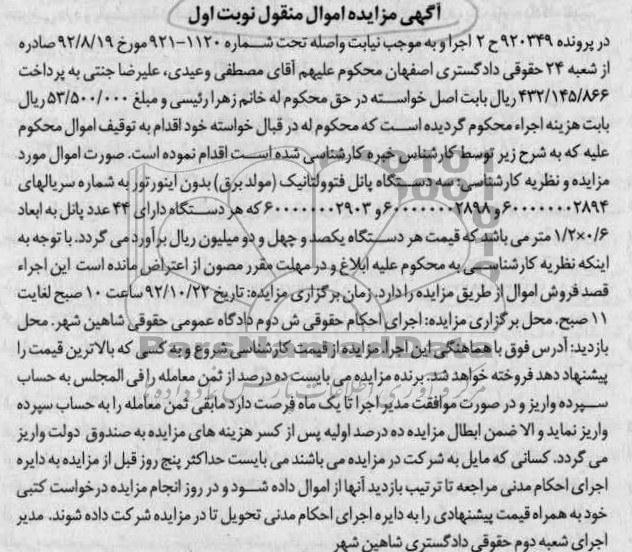 آگهی مزایده اموال منقول نوبت اول
در پرونده ۹۲۰۳۴۹ ح ۲ اجرا و به موجب نیابت واصله تحت شماره ۱۱۲۰-۹۲۱ مورخ ۹۲/۸/۱۹ صادره
از شعبه ۲۴ حقوقی دادگستری اصفهان محکوم علیهم آقای مصطفی وعیدی، علیرضا جنتی به پرداخت
۴۳۲/۱۴۵/۸۶۶ ریال بابت اصل خواسته در حق محکوم له خانم زهرا رئیسی و مبلغ ۵۳/۵۰۰/۰۰۰ ریال
بابت هزینه اجراء محکوم گردیده است که محکوم له در قبال خواسته خود اقدام به توقیف اموال محکوم
علیه که به شرح زیر توسط کارشناس خبره کارشناسی شده است اقدام نموده است. صورت اموال مورد
مزایده و نظریه کارشناسی: سه دستگاه پانل فتوولتائیک (مولد برق) بدون اینورتور به شماره سریالهای
۶۰۰۰۰۰۰۰۲۸۹۴ و ۶۰۰۰۰۰۰۰۲۸۹۸ و ۶۰۰۰۰۰۰۰۲۹۰۳ که هر دستگاه دارای ۴۴ عدد پانل به ابعاد
۱/۲×۰/۶ متر می باشد که قیمت هر دستگاه یکصد و چهل و دو میلیون ریال برآورد می گردد. با توجه به
اینکه نظریه کارشناسی به محکوم علیه ابلاغ و در مهلت مقرر مصون از اعتراض مانده است این اجراء
قصد فروش اموال از طریق مزایده را دارد. زمان برگزاری مزایده: تاریخ ۹۲/۱۰/۲۲ ساعت ۱۰ صبح لغایت
۱۱ صبح. محل برگزاری مزایده: اجرای احکام حقوقی ش دوم دادگاه عمومی حقوقی شاهین شهر. محل
بازدید: آدرس فوق با هماهنگی این اجرا مزایده از قیمت کارشناسی شروع و به کسی که بالاترین قیمت را
پیشنهاد دهد فروخته خواهد شد. برنده مزایده می بایست ده درصد از ثمن معامله را فی المجلس به حساب
سپرده واریز و در صورت موافقت مدیر اجرا تا یک ماه فرصت دارد مابقی ثمن معامله را به حساب سپرده
واریز نماید و الا ضمن ابطال مزایده ده درصد اولیه پس از کسر هزینه های مزایده به صندوق دولت واریز
می گردد. کسانی که مایل به شرکت در مزایده می باشند می بایست حداکثر پنج روز قبل از مزایده به دایره
اجرای احکام مدنی مراجعه تا ترتیب بازدید آنها از اموال داده شود و در روز انجام مزایده درخواست کتبی
خود به همراه قیمت پیشنهادی را به دایره اجرای احکام مدنی تحویل تا در مزایده شرکت داده شوند. مدیر
اجرای شعبه دوم حقوقی دادگستری شاهین شهر
ParsNamadData